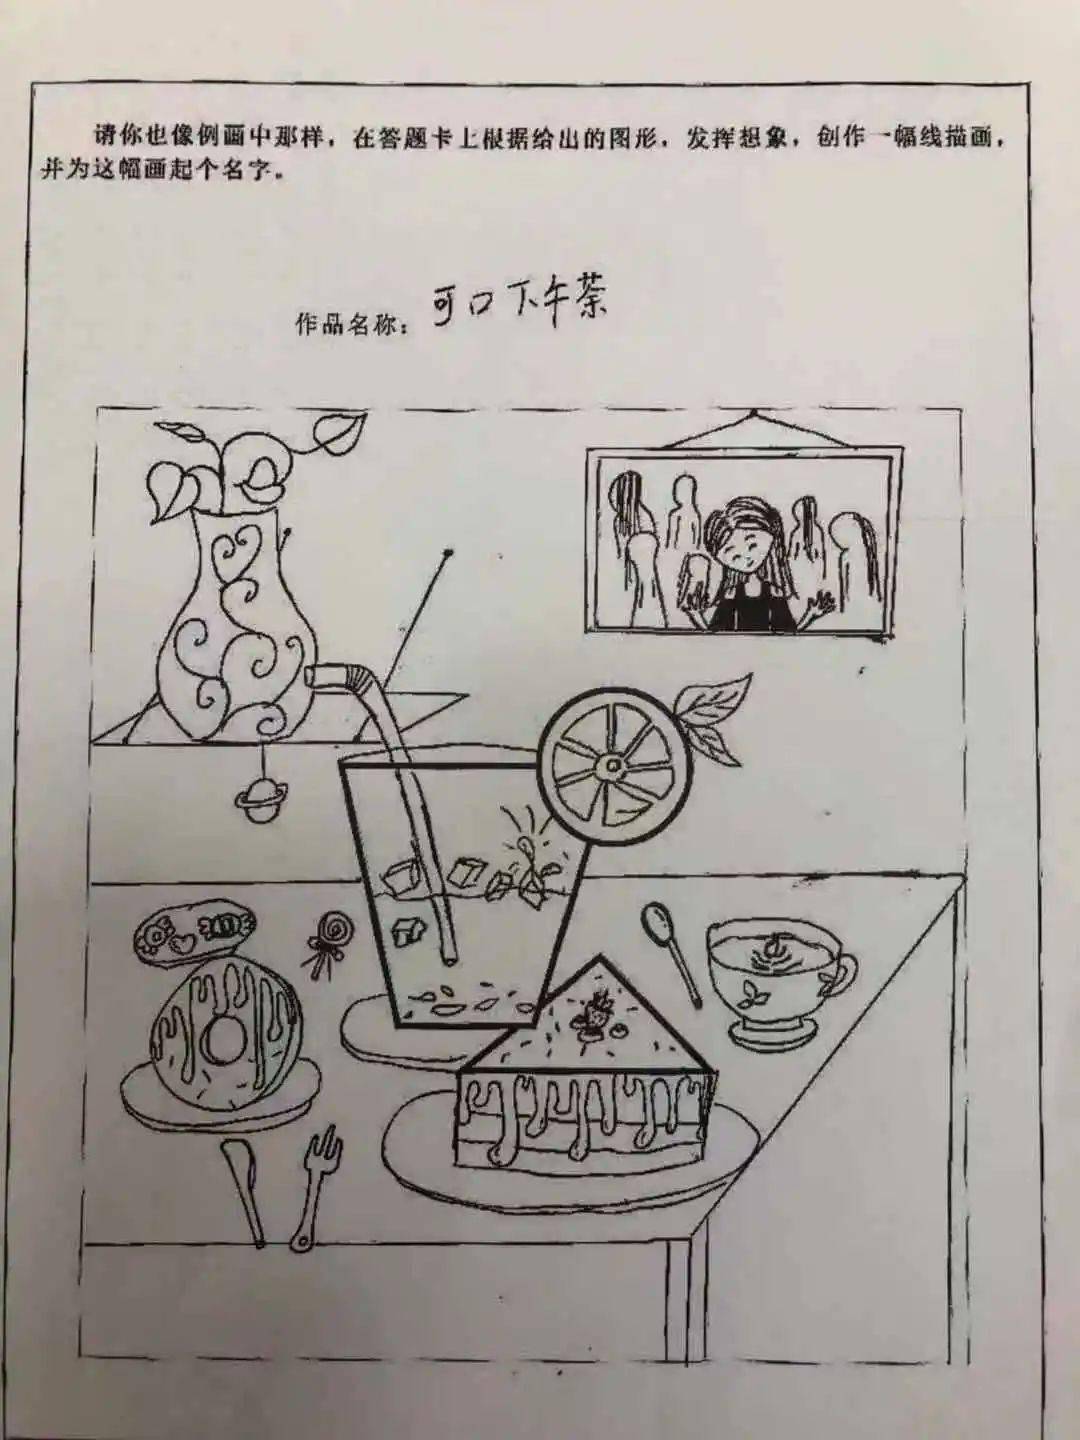 请你也像例画中那样，在答题卡上根据给出的图形，发挥想象，创作一幅线描画，
并为这幅画起个名字。
作品名称：可口下午茶